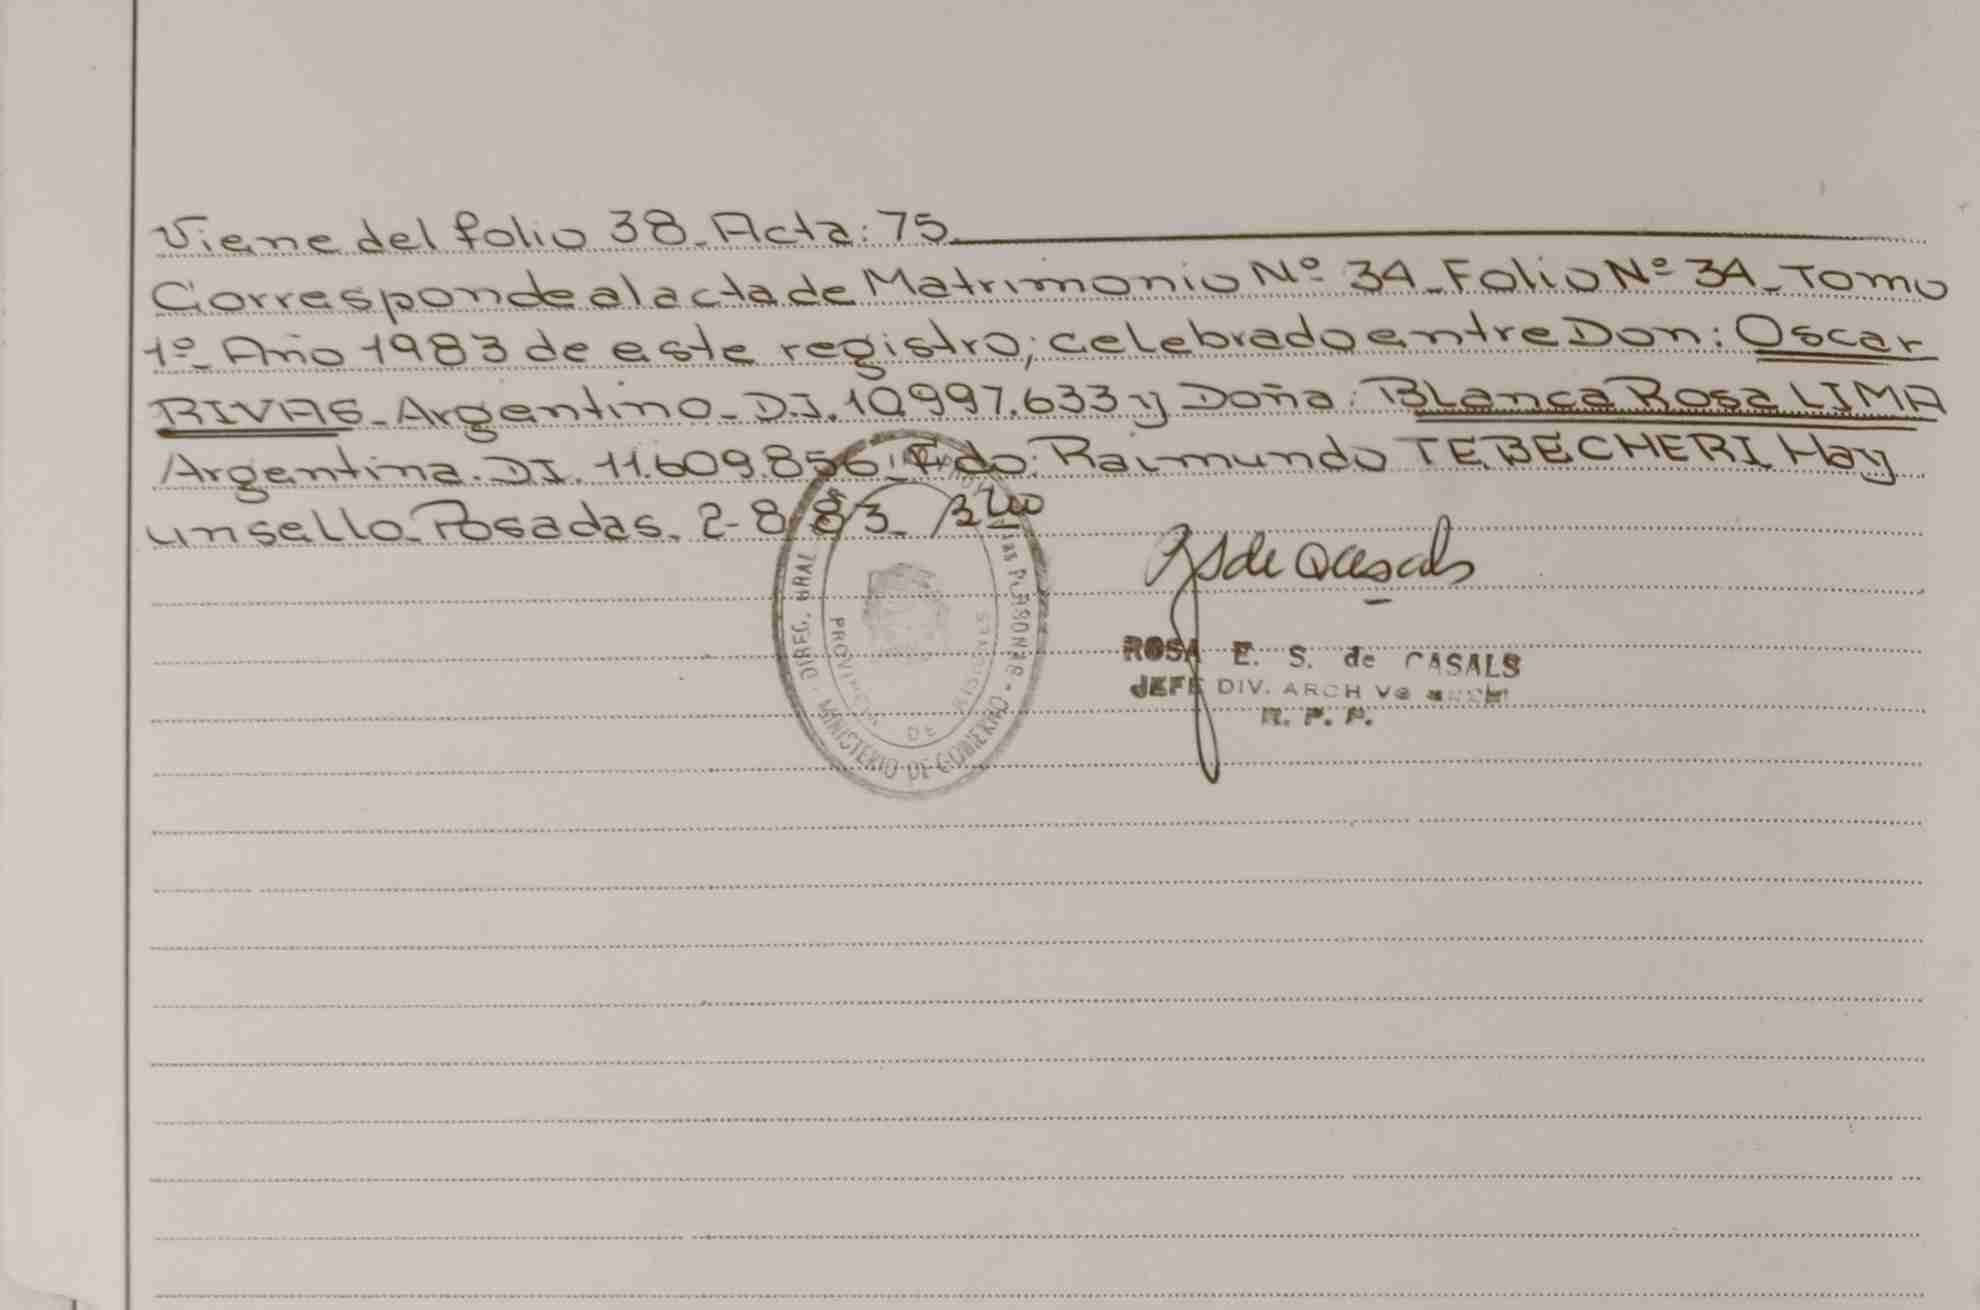 Viene del folio 38. Acta: 75.
Corresponde al acta de Matrimonio Nº 34 - Folio Nº 34 - Tomo
1º - Año 1983 de este registro; celebrado entre Don: Oscar
RIVAS - Argentino - D.I. 10.997.633 y Doña: Blanca Rosa LIMA
Argentina. DI. 11.609.856. Fdo: Raimundo TEBECHERI. Hay
un sello. Posadas. 2-8-83.
ROSA E. S. de CASALS
JEFE DIV. ARCH
R. P. P.
DIREC. GRAL
LAS PERSONAS - MINISTERIO DE GOBIERNO
PROVINCIA DE MISIONES